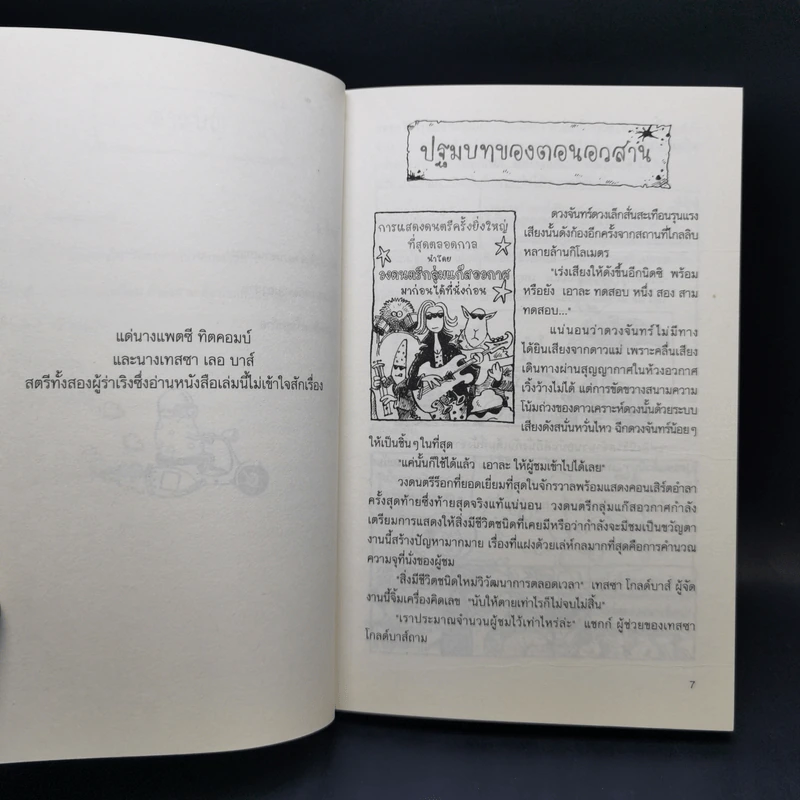 แด่นางแพตซี ทิตคอมบ์
และนางเทสซา เลอ บาส์
สตรีทั้งสองผู้ร่าเริงซึ่งอ่านหนังสือเล่มนี้ไม่เข้าใจสักเรื่อง
ปฐมบทของตอนอวสาน
การแสดงดนตรีครั้งยิ่งใหญ่
ที่สุดตลอดกาล
นำโดย
วงดนตรีกลุ่มแก๊สอวกาศ
มาก่อนได้ที่นั่งก่อน
ดวงจันทร์ดวงเล็กสั่นสะเทือนรุนแรง
เสียงนั้นดังก้องอีกครั้งจากสถานที่ไกลลิบ
หลายล้านกิโลเมตร
"เร่งเสียงให้ดังขึ้นอีกนิดซิ พร้อม
หรือยัง เอาละ ทดสอบ หนึ่ง สอง สาม
ทดสอบ..."
แน่นอนว่าดวงจันทร์ไม่มีทาง
ได้ยินเสียงจากดาวแม่ เพราะคลื่นเสียง
เดินทางผ่านสุญญากาศในห้วงอวกาศ
เวิ้งว้างไม่ได้ แต่การขัดขวางสนามความ
โน้มถ่วงของดาวเคราะห์ดวงนั้นด้วยระบบ
เสียงดังสนั่นหวั่นไหว ฉีกดวงจันทร์น้อยๆ
ให้เป็นชิ้นๆ ในที่สุด
"แค่นั้นก็ใช้ได้แล้ว เอาละ ให้ผู้ชมเข้าไปได้เลย"
วงดนตรีร็อกที่ยอดเยี่ยมที่สุดในจักรวาลพร้อมแสดงคอนเสิร์ตอำลา
ครั้งสุดท้ายซึ่งท้ายสุดจริงแท้แน่นอน วงดนตรีกลุ่มแก๊สอวกาศกำลัง
เตรียมการแสดงให้สิ่งมีชีวิตชนิดที่เคยมีหรือว่ากำลังจะมีชมเป็นขวัญตา
งานนี้สร้างปัญหามากมาย เรื่องที่แฝงด้วยเล่ห์กลมากที่สุดคือการคำนวณ
ความจุที่นั่งของผู้ชม
"สิ่งมีชีวิตชนิดใหม่วิวัฒนาการตลอดเวลา" เทสซา โกลด์บาส์ ผู้จัด
งานนี้จิ้มเครื่องคิดเลข "นับให้ตายเท่าไรก็ไม่จบไม่สิ้น"
"เราประมาณจำนวนผู้ชมไว้เท่าไหร่ล่ะ" แชกก์ ผู้ช่วยของเทสซา
โกลด์บาส์ถาม
7